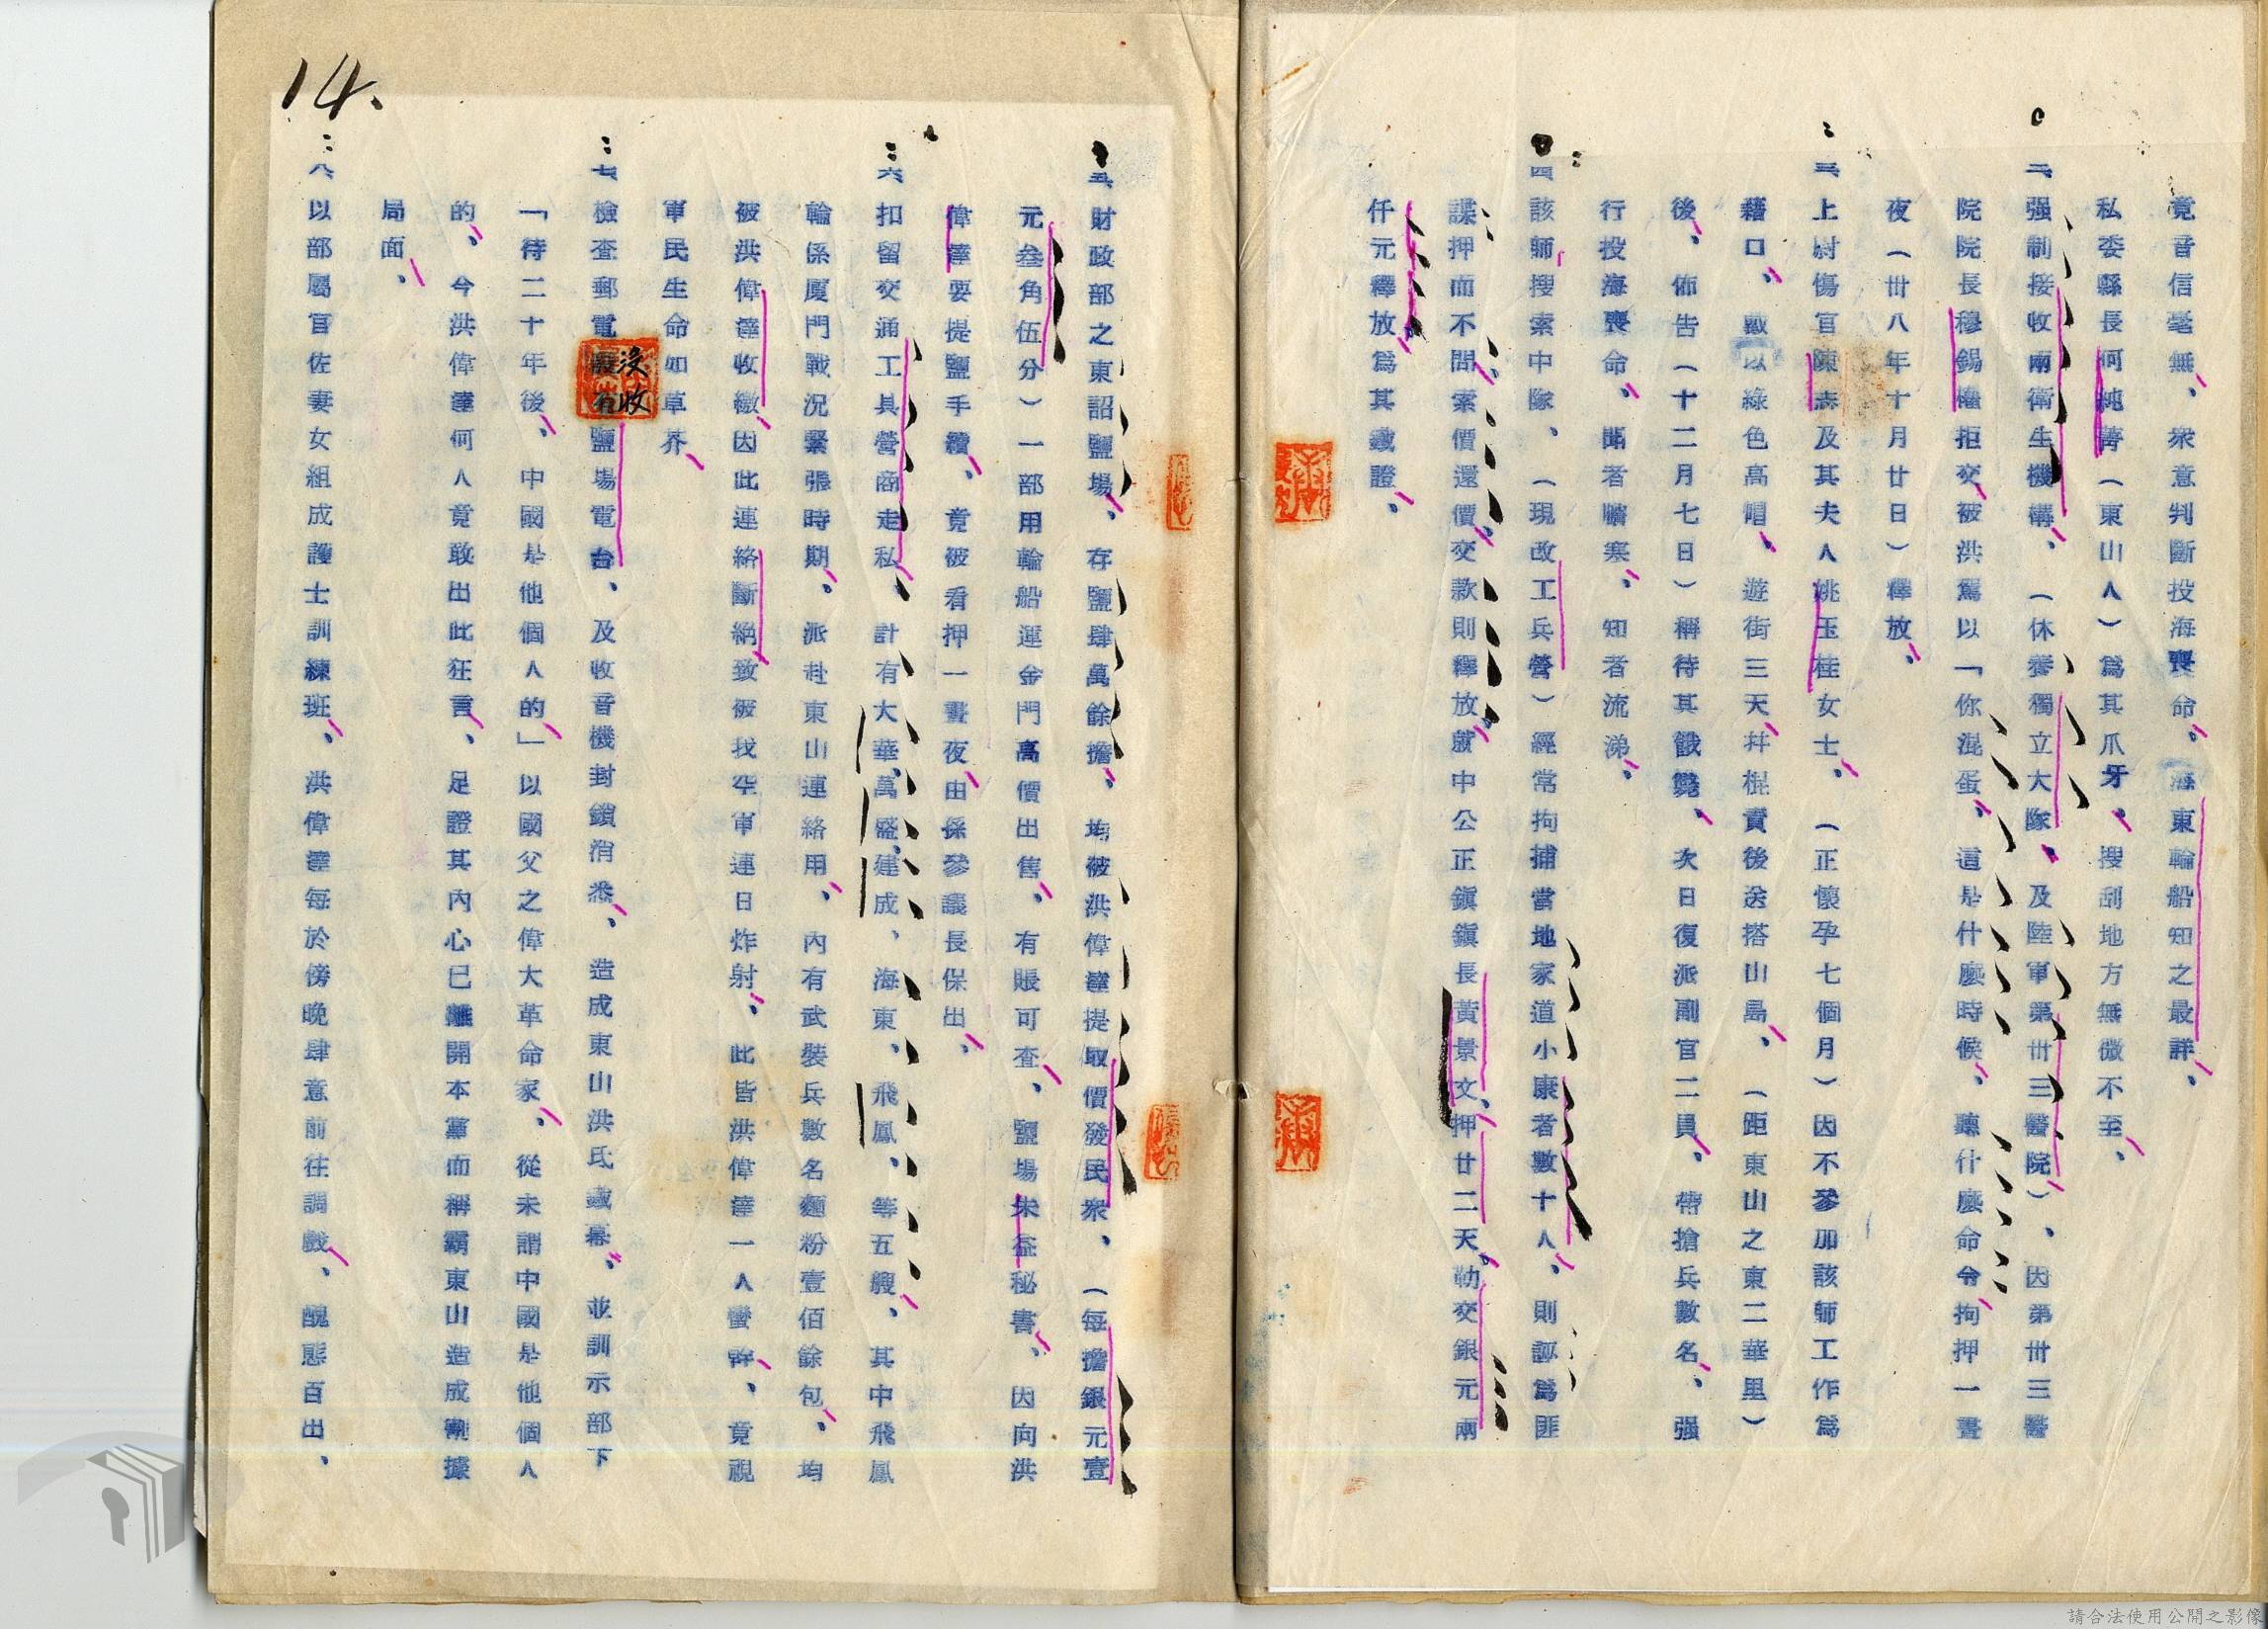 竟音信毫無、衆意判斷投海喪命。海東輪船知之最詳、
私委縣長何純菁（東山人）爲其爪牙、搜刮地方無微不至、
二、强制接收兩衛生機構、（休養獨立大隊、及陸軍第卅三醫院）、因第卅三醫
院院長穆錫 拒交被洪罵以「你混蛋、這是什麽時候、聽什麽命令拘押一晝
夜（卅八年十月廿日）釋放、
三、上尉傷官陳志及其夫人姚玉桂女士、（正懷孕七個月）因不參加該師工作爲
藉口、戴以綠色高帽、遊街三天幷棍責後送搭山島、（距東山之東二華里）
後、佈告（十二月七日）稱待其餓斃、次日復派副官二員、帶搶兵數名、强
行投海喪命、聞者膽寒、知者流涕、
四、該師搜索中隊、（現改工兵營）經常拘捕當地家道小康者數十人、則誣爲匪
諜押而不問索價還價、交款則釋放、茲中公正鎭鎭長黃景文、押廿二天、勒交銀元兩
仟元釋放爲其鐵證、
五、財政部之東詔鹽場、存鹽肆萬餘擔、均被洪偉達提取價發民衆、（每擔銀元壹
元叁角伍分）一部用輪船運金門高價出售、有賬可查、鹽場朱 秘書、因向洪
偉達要提鹽手續、竟被看押一晝夜、由係參議長保出、
六、扣留交通工具營商走私、計有大華、萬盛、建成、海東、飛鳳、等五艘、其中飛鳳
輪係厦門戰況緊張時期、派赴東山連絡用、內有武裝兵數名麵粉壹佰餘包、均
被洪偉達收繳、因此連絡斷絕致被我空軍連日炸射、此皆洪偉達一人蠻幹、竟視
軍民生命如草芥、
七、檢查郵電沒收鹽場電台、及收音機封鎖消悉、造成東山洪氏鐵幕、並訓示部下
「待二十年後、中國是他個人的」以國父之偉大革命家、從未謂中國是他個人
的、今洪偉達何人竟敢出此狂言、足證其內心已離開本黨而稱霸東山造成割據
局面、
八、以部屬官佐妻女組成護士訓練班、洪偉達每於傍晚肆意前往調戲、醜態百出、
14.
請合法使用公開之影像